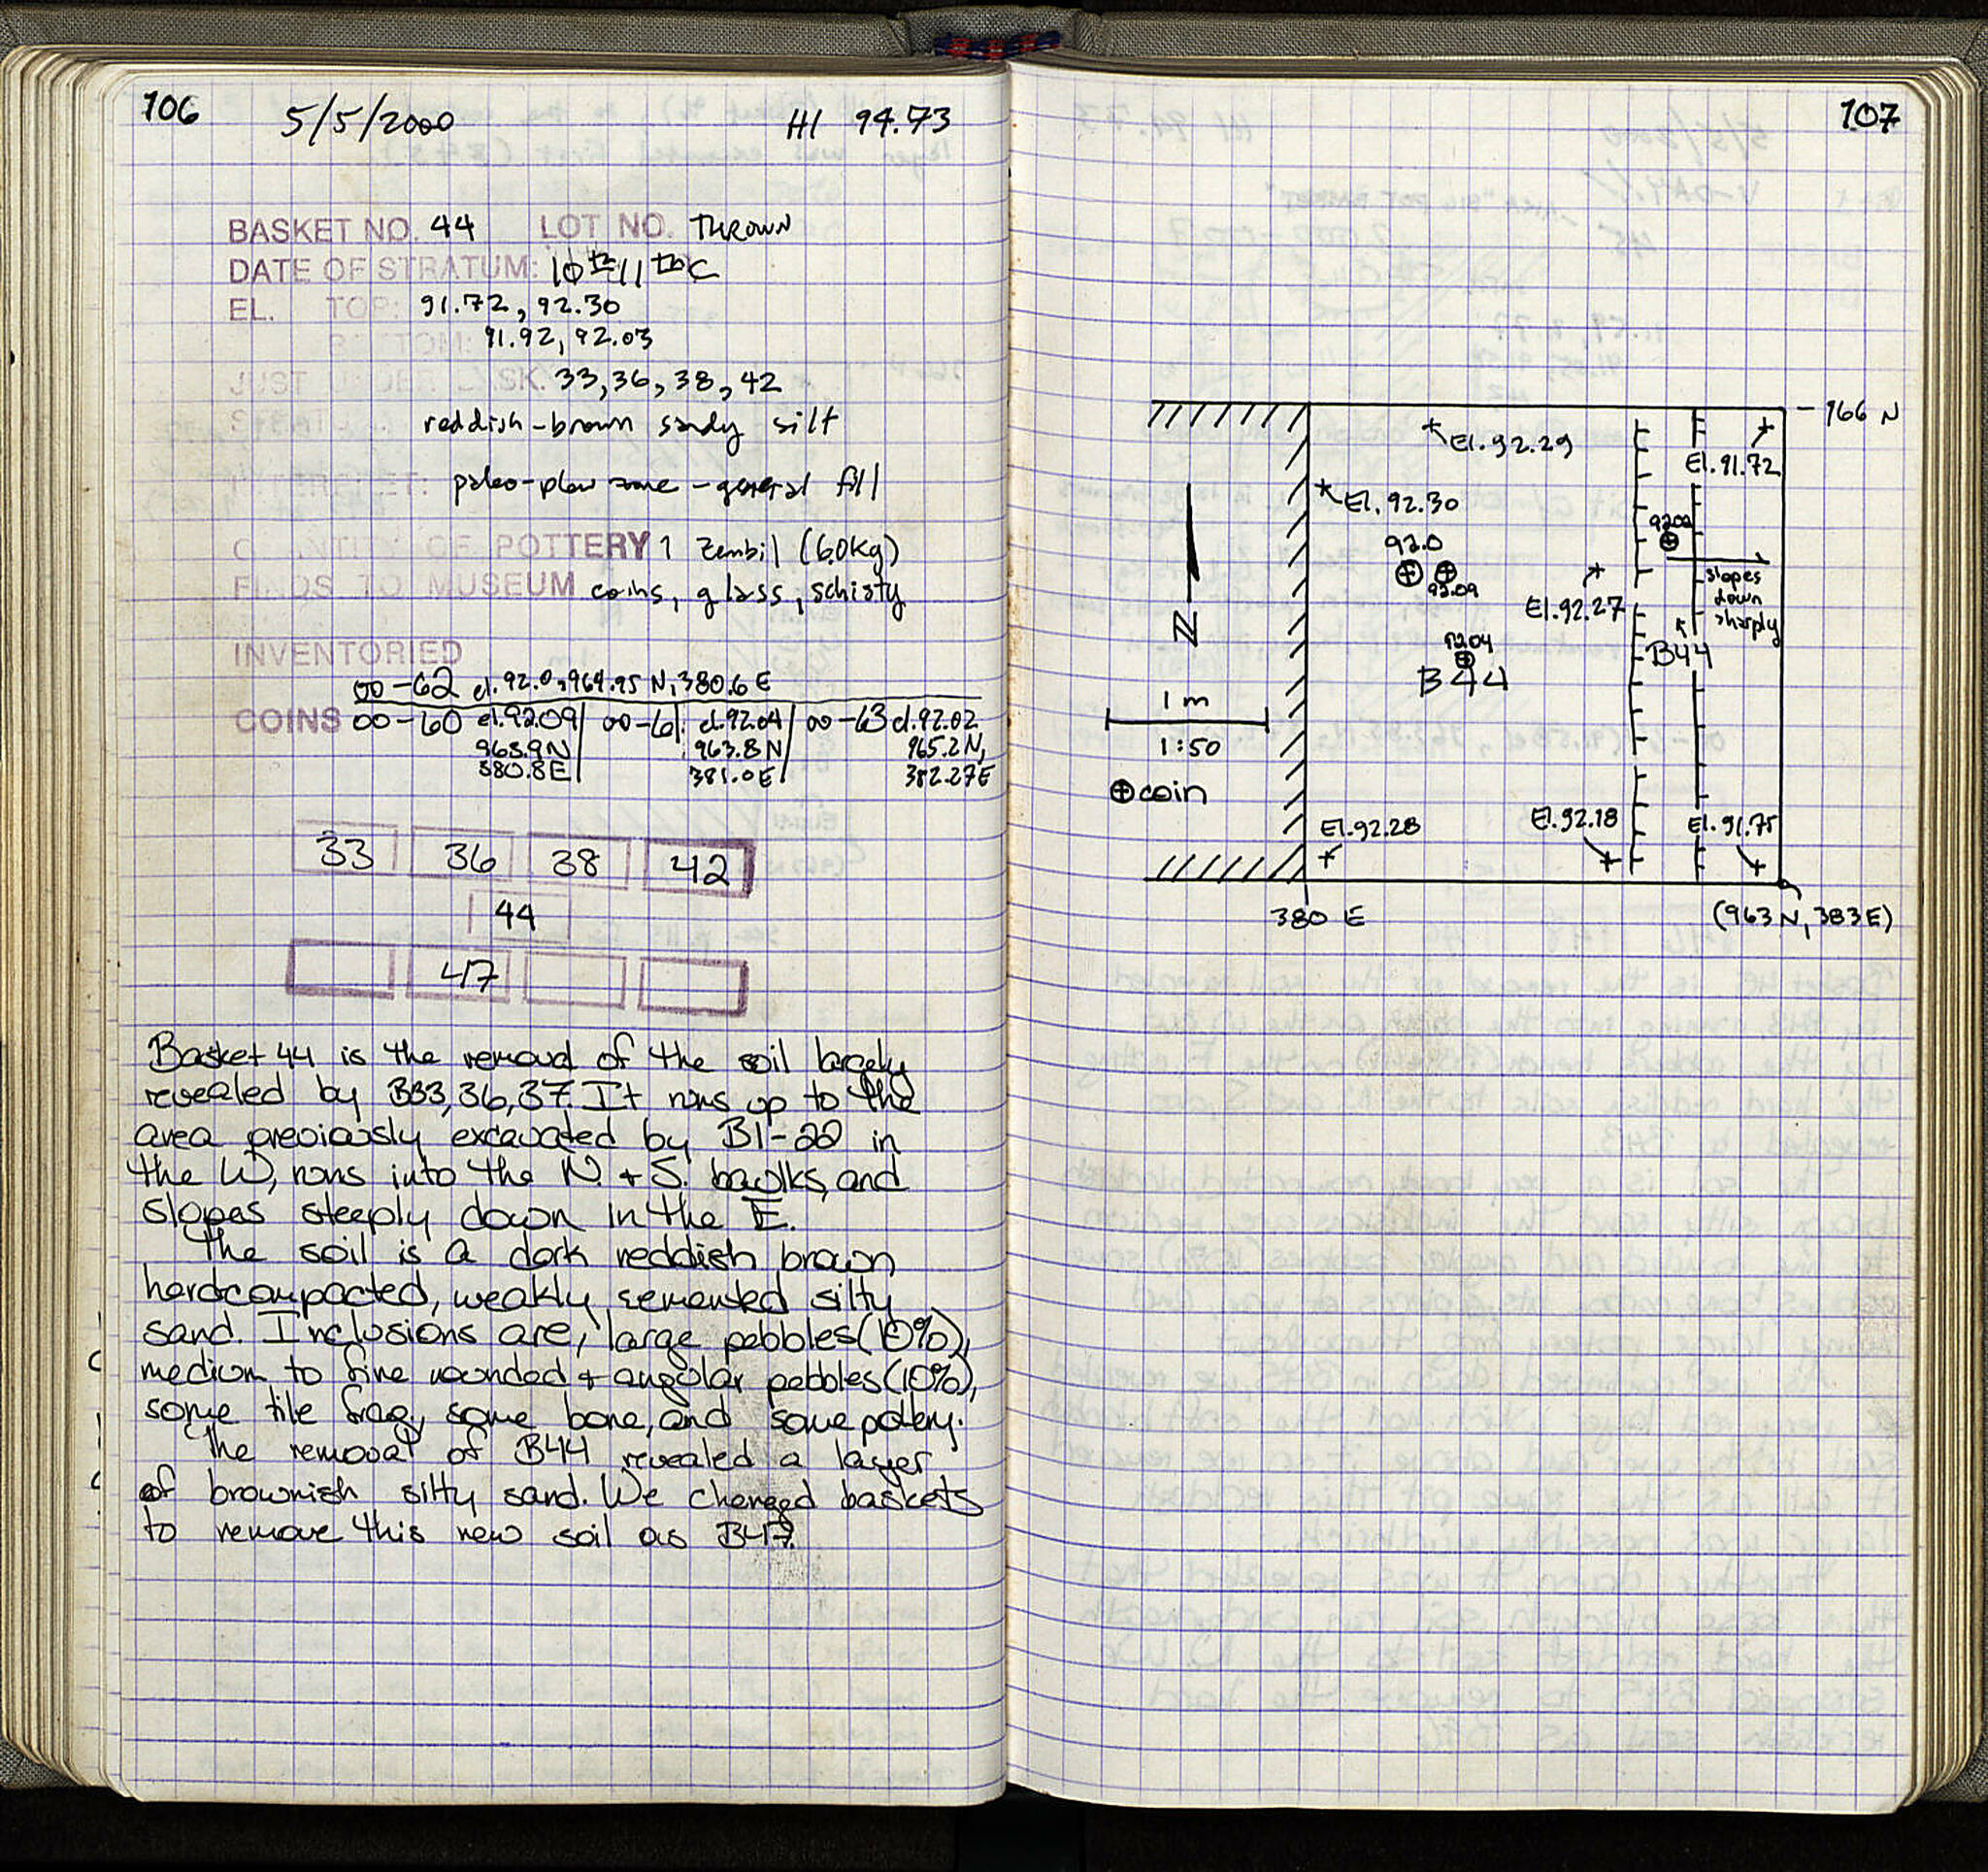 106 5/5/2000 HI 94.73
BASKET NO. 44 LOT NO. THROWN
DATE OF STRATUM: 10th-11th C
EL. TOP: 91.72, 92.30
BOTTOM: 91.92, 92.03
JUST UNDER BSK. 33, 36, 38, 42
reddish-brown sandy silt
paleo-plow zone - general fill
QUANTITY OF POTTERY 1 Zembil (6.0kg)
FINDS TO MUSEUM coins, glass, schisty
INVENTORIED
00-62 el. 92.0, 964.95 N, 380.6 E
COINS 00-60 el. 92.09 | 00-61: el. 92.04 | 00-63 el. 92.02
963.9N 963.8N 965.2N,
380.8E 381.0E 382.27E
33 36 38 42
44
47
Basket 44 is the removal of the soil largely
revealed by B33, 36, 37. It runs up to the
area previously excavated by B1-22 in
the W, runs into the N. + S. baulks, and
slopes steeply down in the E.
The soil is a dark reddish brown
hardcompacted, weakly cemented silty
sand. Inclusions are, large pebbles (10%),
medium to fine rounded + angular pebbles (10%),
some tile frag, some bone, and some pottery.
The removal of B44 revealed a layer
of brownish silty sand. We changed baskets
to remove this new soil as B47.
107
966 N
El. 92.29
El. 91.72
El. 92.30
92.02
92.0
92.09
slopes
down
sharply
El. 92.27
N
92.04
B44
B44
1 m
1:50
coin
El. 92.28
El. 92.18
El. 91.75
380 E
(963 N, 383 E)